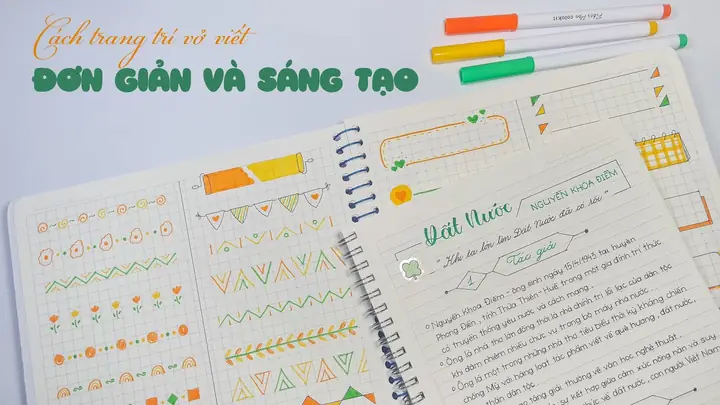 Cách trang trí vở viết
ĐƠN GIẢN VÀ SÁNG TẠO
Đất Nước
NGUYỄN KHOA ĐIỀM
" Khi ta lớn lên Đất Nước đã có rồi "
1
Tác giả
Nguyễn Khoa Điềm - ông sinh ngày 15/4/1943 tại huyện
Phong Điền, tỉnh Thừa Thiên - Huế trong một gia đình trí thức
có truyền thống yêu nước và cách mạng.
Ông là nhà thơ lớn đồng thời là nhà chính trị lỗi lạc của dân tộc
khi đảm nhiệm nhiều chức vụ trong bộ máy nhà nước.
Ông là một trong những nhà thơ tiêu biểu thời kỳ kháng chiến
chống Mỹ với hàng loạt tác phẩm viết về quê hương, đất nước,
thân dân tộc.
tặng giải thưởng về văn học nghệ thuật.
sự kết hợp giữa cảm xúc nồng nàn và suy
về đất nước, con người Việt Nam